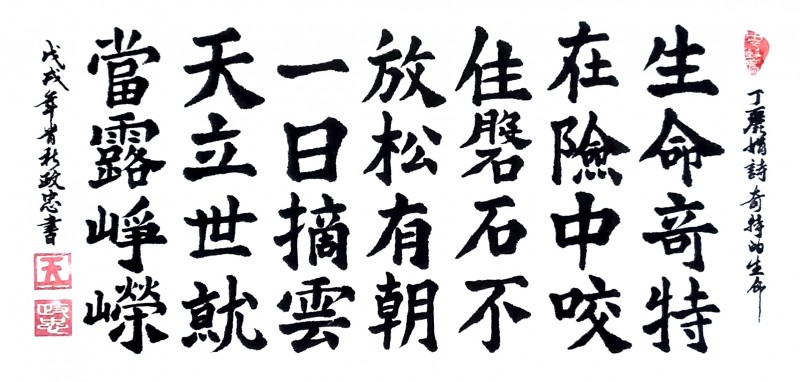 丁麗娟詩奇特的生命
生命竒特
在險中咬
住磐石不
放松有朝
一日摘雲
天立世就
當露崢嶸
戊戌年肖秋政忠書